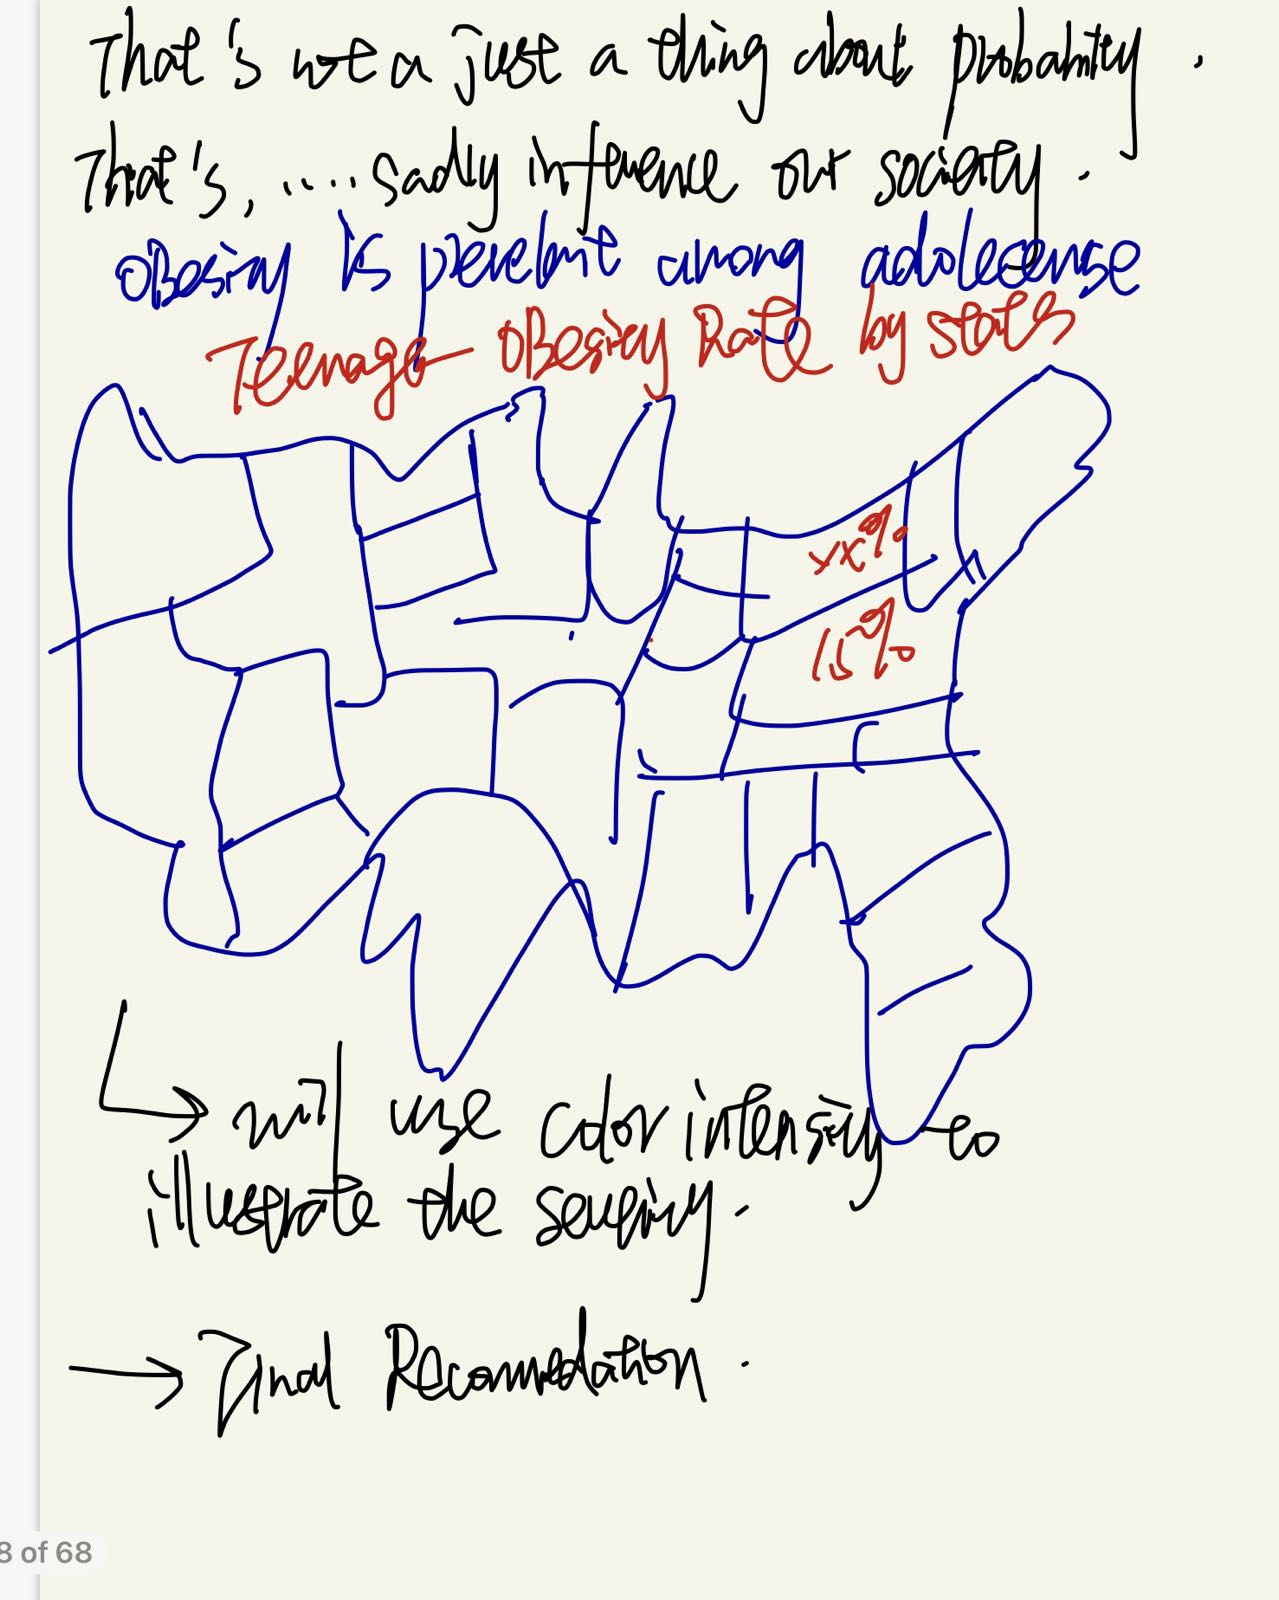 That's not a just a thing about probability.
That's, ..... sadly influence our society.
OBesity is prevelant among adolecense
Teenage OBesity Rate by states
xx%
15%
will use color intensity to
illustrate the severity.
Final Recommedation.
8 of 68